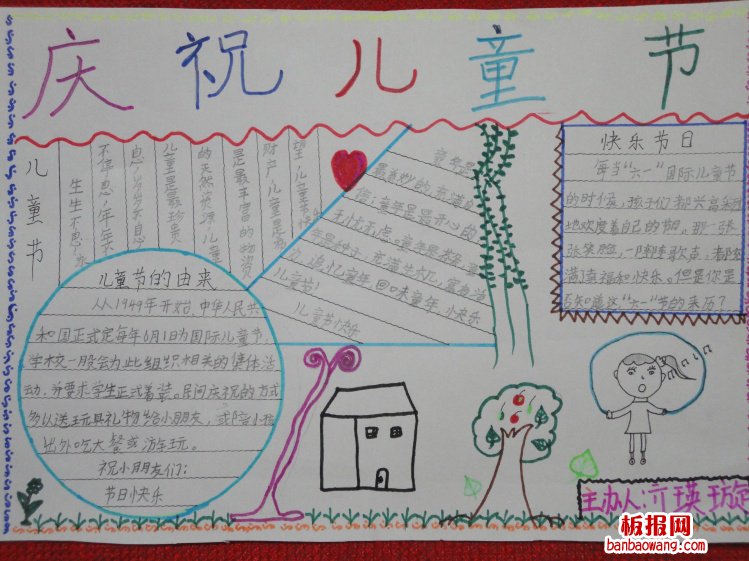 庆祝儿童节
儿童节
望,儿童是
财产,儿童是最
是最丰富的动资
的天然资源,儿童
儿童是最珍贵
息,岁岁无息
不停息,年年无
生生不息,永
童年是
最美妙的,充满自
信;童年是最开心的
无忧无虑,童年是
年是种子,充满生机,富有活
力,追忆童年,回味童年,快乐
儿童节!
儿童节快乐
快乐节日
每当“六一”国际儿童节
的时候,孩子们都兴高采烈
地欢度着自己的节日。那一张
张笑脸,一阵阵歌声,都充
满幸福和快乐。但是你是
否知道这“六一”节的来历?
儿童节的由来
从1949年开始,中华人民共
和国正式定每年6月1日为国际儿童节,
学校一般会为此组织相关的集体活
动,并要求学生正式着装。民间庆祝的方式
多以送玩具礼物给小朋友,或陪小孩
出外吃大餐或游玩。
祝小朋友们:
节日快乐
主办人:
板报网
banbaowang.com